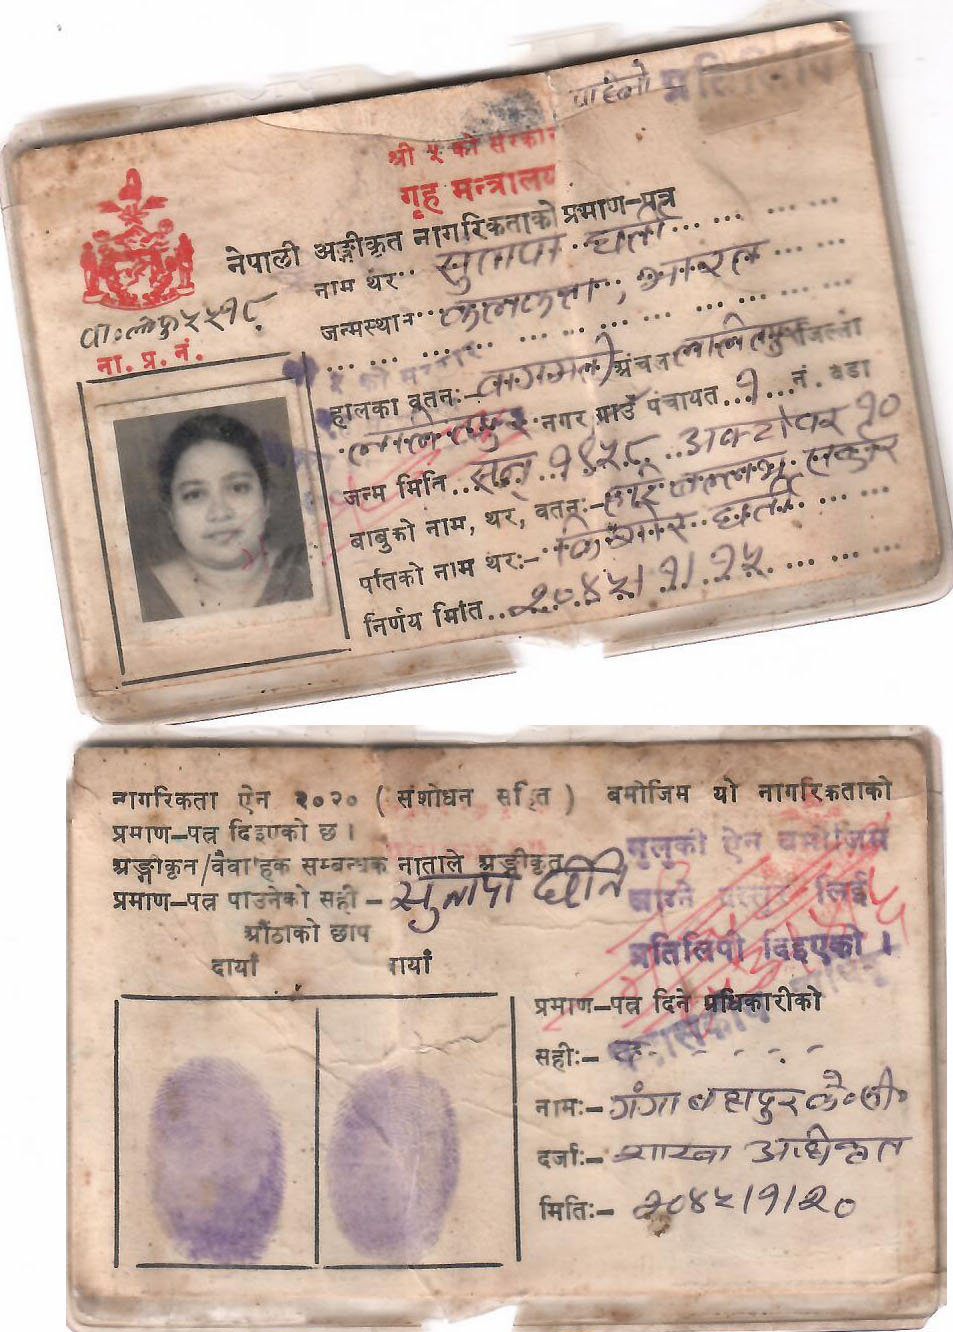 पहिलो प्रतिलिपि
श्री ५ को सरकार
गृह मन्त्रालय
नेपाली अङ्गीकृत नागरिकताको प्रमाण-पत्र
ना. प्र. नं.
नाम थर सुतापा घर्ती
जन्मस्थान कलकत्ता, भारत
हालका वतनः- बागमती अंचल ललितपुर जिल्ला
ललितपुर नगर गाउँ पंचायत १ नं. वडा
जन्म मिति सन् १९५८ अक्टोवर १०
बाबुको नाम, थर, वतनः-
पतिको नाम थरः- किशोर घर्ती
निर्णय मिति २०४५।१।१५
नागरिकता ऐन २०२० ( संशोधन सहित ) बमोजिम यो नागरिकताको
प्रमाण-पत्र दिइएको छ ।
अङ्गीकृत/वैवाहिक सम्बन्धक नाताले अङ्गीकृत
प्रमाण-पत्र पाउनेको सही - सुतापा घर्ति
औंठाको छाप
दायाँ बायाँ
मुलुकी ऐन बमोजिम
लाग्ने दस्तुर लिई
प्रतिलिपी दिइएको ।
प्रमाण-पत्र दिने अधिकारीको
सहीः-
नामः- गंगा बहादुर
दर्जाः- शाखा अधिकृत
मितिः- २०४५।१।२०